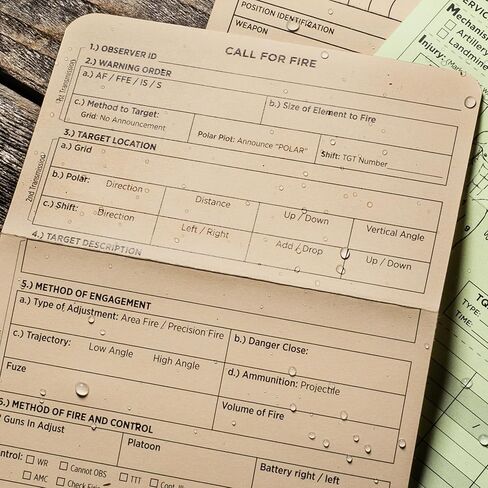 POSITION IDENTIFICATION
WEAPON
SERVIC
Mechanis
Artillery
Landmine
Injury: (Mar
CALL FOR FIRE
1st Transmission
1.) OBSERVER ID
2.) WARNING ORDER
a.) AF / FFE / IS / S
b.) Size of Element to Fire
c.) Method to Target:
Grid: No Announcement
Polar Plot: Announce "POLAR"
Shift: TGT Number
2nd Transmission
3.) TARGET LOCATION
a.) Grid
b.) Polar: Direction
Distance
Up / Down
Vertical Angle
c.) Shift: Direction
Left / Right
Add / Drop
Up / Down
4.) TARGET DESCRIPTION
5.) METHOD OF ENGAGEMENT
a.) Type of Adjustment: Area Fire / Precision Fire
b.) Danger Close:
c.) Trajectory: Low Angle High Angle
d.) Ammunition: Projectile
Fuze
Volume of Fire
6.) METHOD OF FIRE AND CONTROL
Guns in Adjust
Platoon
Battery right / left
ontrol: WR Cannot OBS TTT
AMC
TQ
TYPE:
TIME: